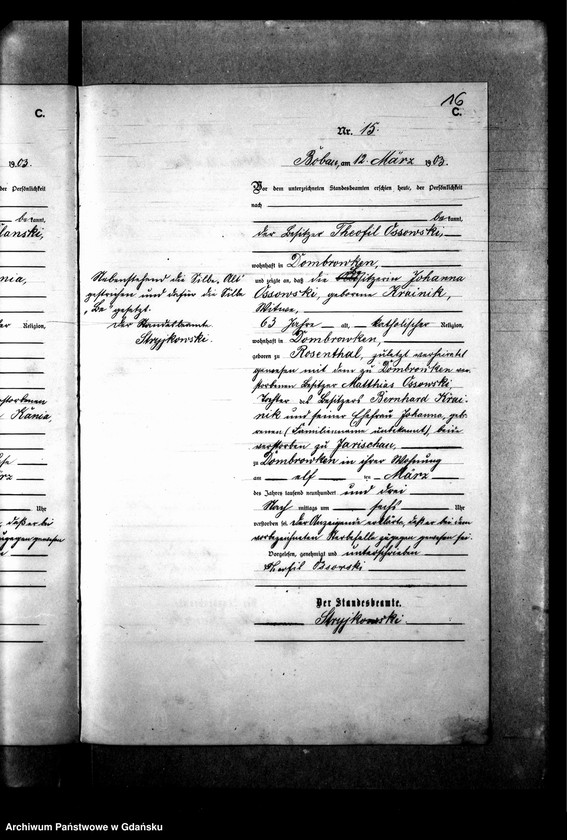 C.
1903.
der Persönlichkeit
be kannt,
Religion,
Uhr
16
C.
Nr. 15.
Bobau, am 12. März 1903.
Vor dem unterzeichneten Standesbeamten erschien heute, der Persönlichkeit
nach
be kannt,
der Besitzer Theofil Ossowski,
wohnhaft in Dombrowken,
und zeigte an, daß die Besitzerin Johanna
Ossowski, geborene Krainik,
Witwe,
63 Jahre alt, katholischer Religion,
wohnhaft in Dombrowken,
geboren zu Rosenthal, zuletzt verheiratet
gewesen mit dem zu Dombrowken ver-
storbenen Besitzer Matthias Ossowski,
Tochter des Besitzers Bernhard Krai-
nik und seiner Ehefrau Johanna, geb-
renen (Familienname unbekannt), beide
verstorben zu Jarischau,
zu Dombrowken in ihrer Wohnung
am elf ten März
des Jahres tausend neunhundert und drei
Nach mittags um sechs Uhr
verstorben sei. Der Anzeigende erklärte, daß er bei dem
vorbezeichneten Sterbefalle zugegen gewesen sei.
Vorgelesen, genehmigt und unterschrieben
Theofil Ossowski
Der Standesbeamte.
Stryjkowski.
Nebenstehend die Silbe „Alt"
gestrichen und dafür die Silbe
„Be" gesetzt.
Der Standesbeamte
Stryjkowski.
Archiwum Państwowe w Gdańsku